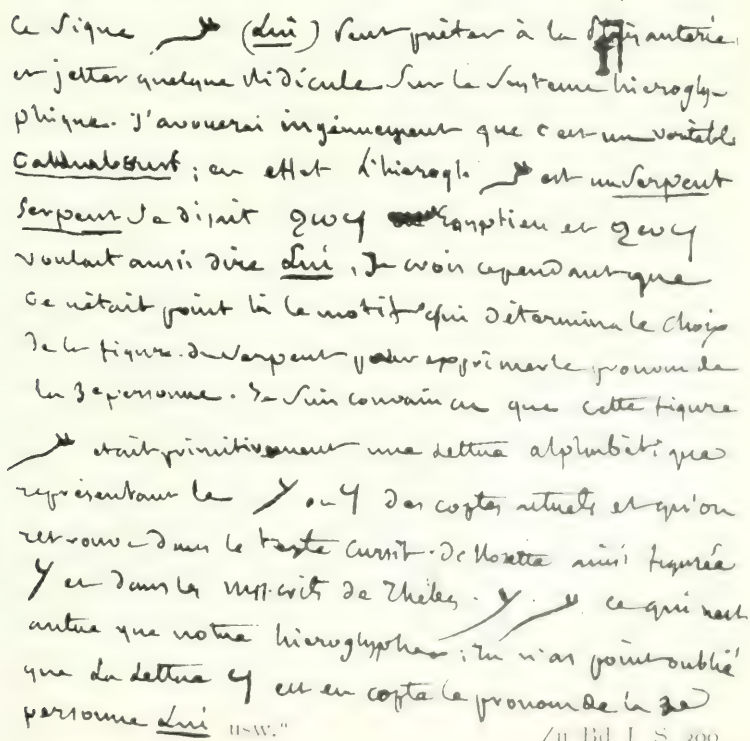 Ce Signe (Lui) veut prêter à la Plaisanterie,
et jetter quelque Ridicule Sur le Systeme hierogly-
phique. J'avouerai ingénuement que c'est un véritable
Callembourg; en effet L'hierogl. est un Serpent
Serpent se disait ϩⲱϥ Egyptien et ϩⲱϥ
voulait aussi dire Lui, Je crois cependant que
ce n'était point là le motif qui détermina le choix
de la figure du Serpent pour exprimer le pronom de
la 3e personne. Je suis convaincu que cette figure
était primitivement une Lettre alphabétique
représentant le y ou ϥ des coptes actuels et qu'on
retrouve dans le texte cursif de Rosette ainsi figurée
y et dans les mss. de Thèbes. y ce qui n'est
autre que notre hieroglyphe; tu n'as point oublié
que La Lettre ϥ est en copte le pronom de la 3e
personne Lui usw."
Zu Bd. I. S. 200